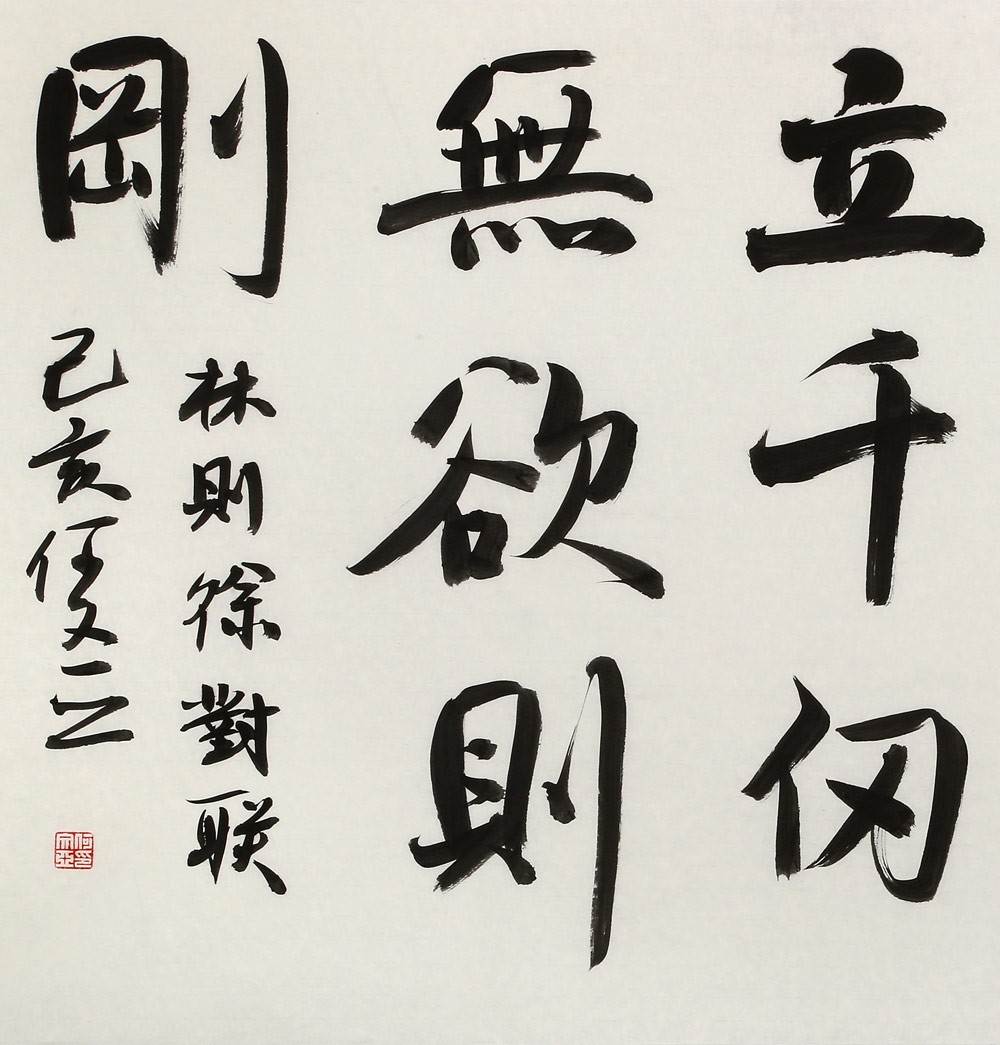 立千仞
無欲則
剛
林則徐對联
己亥